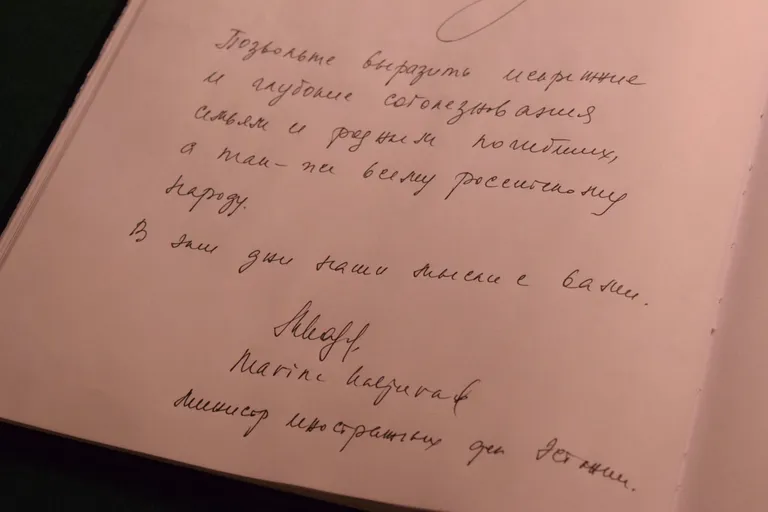 Позвольте выразить искренние
и глубокие соболезнования
семьям и родным погибших,
а так-же всему российскому
народу.
В эти дни наши мысли с вами.
Marina Kaljurand
Министр иностранных дел Эстонии.